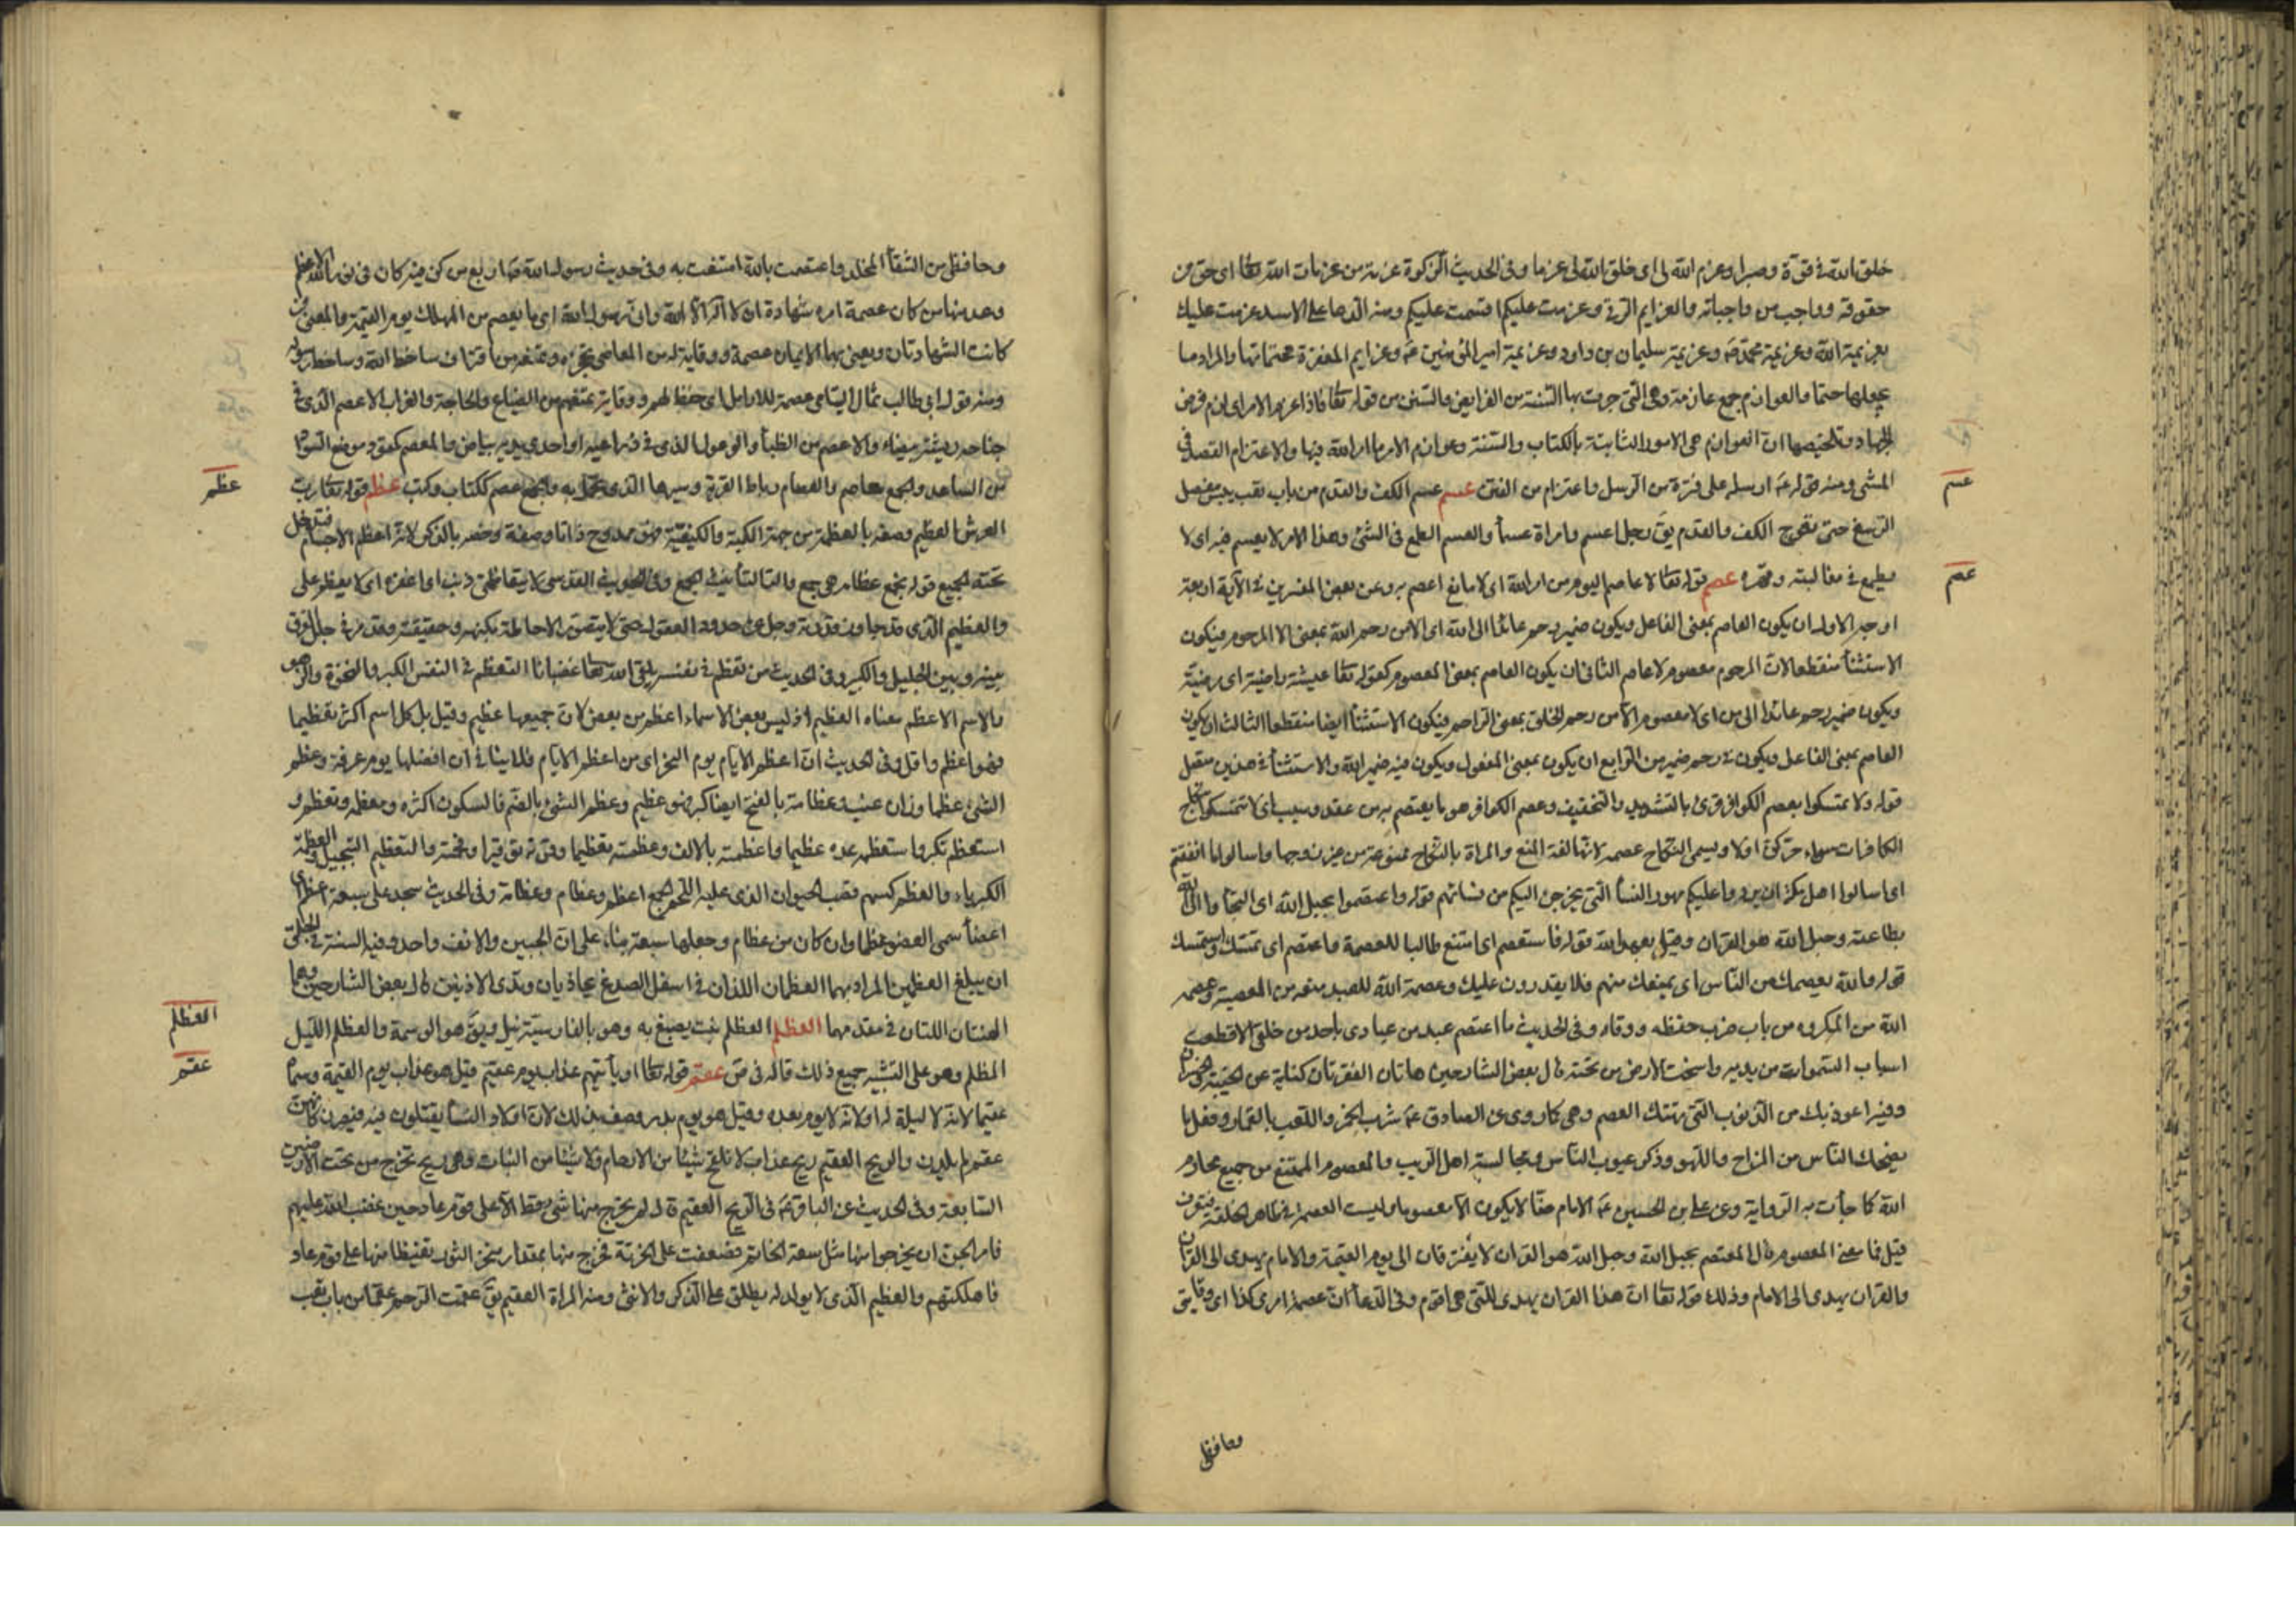 خلق الله فيّ قوّة وصبرا وعزم الله لى اى خلق الله لى عزما وفى الحديث الزكوة عزمة من عزمات الله تعا اى حق من
حقوقه وواجب من واجباته والعزايم الرقى وعزمت عليكم اقسمت عليكم ومنه الدعا على الاسد عزمت عليك
بعزيمة الله وعزيمة محمّد صَ وعزيمة سليمان بن داود وعزيمة امير المؤمنين عَ وعزايم المغفرة محتماتها والمراد ما
يجعلها حتما والعوازم جمع عازمة وهى التى جرت بها السّنة من الفرايض والسّنن من قوله تعا فاذا عزم الامر اى لزم فرض
الجهاد وتلخيصها انّ العوازم هى الامور الثابتة بالكتاب والسّنة وعوازم الامر ما امر الله فيها والاعتزام القصد فى
المشى ومنه قوله عَ ارسله على فترة من الرّسل واعتزام من الفتن عسم عسم الكف والقدم من باب تعب يبس مفصل
الرّسغ حتى تعوج الكف والقدم يقَ رجل اعسم وامراة عسمأ والعسم الطمع فى الشئ وهذا الامر لا يعسم فيه اى لا
يطمع فى مغالبته وقهره عصم قوله تعا لا عاصم اليوم من امر الله اى لا مانع اعصم به وعن بعض المفسرين فى الآية اربعة
اوجه الاول ان يكون العاصم بمعنى الفاعل ويكون ضمير رحم عائدا الى الله اى الا من رحم الله بمعنى الا المرحوم فيكون
الاستثنأ منقطعا لانّ المرحوم معصوم لا عاصم الثانى ان يكون العاصم بمعنى المعصوم كقوله تعا عيشة راضية اى مرضيّة
ويكون ضمير رحم عائدا الى من اى لا معصوم الّا من رحم الخلق بمعنى الرّاحم فيكون الاستثنأ ايضا منقطعا الثالث ان يكون
العاصم بمعنى الفاعل ويكون فى رحم ضمير من الرّابع ان يكون بمعنى المفعول ويكون فيه ضمير الله والاستثنأ فى هذين متصل
قوله ولا تمسكوا بعصم الكوافر قرئ بالتشديد والتخفيف وعصم الكوافر هو ما يعتصم به من عقد وسبب اى لا تتمسكوا بنكاح
الكافرات سواء حرّ كنّ اولا ويسمى النكاح عصمة لانّها لغة المنع والمراة بالنكاح ممنوعة من غير زوجها واسالوا ما انفقتم
اى اسالوا اهل مكّة ان يردوا عليكم مهور النسأ التى يخرجن اليكم من نسائهم قوله واعتصموا بحبل الله اى التجأوا الى الله
بطاعته وحبل الله هو القران وقيل بعهد الله قوله فاستعصم اى امتنع طالبا للعصمة واعتصم اى تمسّك واستمسك
قوله والله يعصمك من النّاس اى يمنعك منهم فلا يقدرون عليك وعصمة الله للعبد منعه من المعصية وعصمه
الله من المكروه من باب ضرب حفظه ووقاه وفى الحديث ما اعتصم عبد من عبادى باحد من خلقى الا قطعت
اسباب السّموات من يديه واسخت الارض من تحته قال بعض الشارحين هاتان الفقرتان كناية عن الخيبة والخسران
وفيه اعوذ بك من الذنوب التى تهتك العصم وهى كما روى عن الصادق عَ شرب الخمر واللّعب بالقمار وفعل ما
يضحك النّاس من المزاح واللّهو وذكر عيوب النّاس ومجالسة اهل الريب والمعصوم الممتنع من جميع محارم
الله كما جأت به الرّواية وعن على بن الحسين عَ الامام منّا لا يكون الا معصوما وليست العصمة فى ظاهر الخلقة فيعرف
قيل فما معنى المعصوم قال المعتصم بحبل الله وحبل الله هو القران لا يفترقان الى يوم القيمة والامام يهدى الى القران
والقران يهدى الى الامام وذلك قوله تعا انّ هذا القران يهدى للتى هى اقوم وفى الدّعأ انّ عصمة امرى كذا اى وقايتى
وحافظى
عسم
عصم
وحافظى من الشقأ المخلد واعتصمت بالله امتنعت به وفى حديث رسول الله صَ اربع من كن فيه كان فى نور الله الاعظم
وعد منها من كان عصمة امره شهادة ان لا اله الّا الله وانّى رسول الله اى ما يعصم من المهالك يوم القيمة والمعنى من
كانت الشهادتان ويعنى بهما الايمان عصمة ووقاية له من المعاصى تحجزه وتمنعه من اقتراف مساخط الله ومساخط رسوله
ومنه قول ابى طالب ثمال اليتامى عصمة للارامل اى حفظ لهم ووقاية تمنعهم من الضياع والحاجة والغراب الاعصم الّذى فى
جناحه ريشة بيضاء والاعصم من الظبأ والوعول الذى فى ذراعيه او احدى يديه بياض والمعصم كمقود موضع السّوار
من الساعد والجمع معاصم والعصام رباط القربة وسيرها الذى تحمل به والجمع عصم ككتاب وكتب عظم قوله تعا ربّ
العرش العظيم وصفه بالعظمة من جهة الكمية والكيفيّة فهو ممدوح ذاتا وصفة وخصّه بالذكر لانّه اعظم الاجسام فيدخل
تحته الجميع قوله نجمع عظامه هى جمع والتا لتأنيث الجمع وفى الحديث القدسى لا يتعاظمنى ذنب اى اغفره اى لا يعظم على
والعظيم الّذى قد جاوز قدرته وجل عن حدود العقول حتى لا يتصور الاحاطة بكنهه وحقيقته وقد مر فى جلل الفرق
بينه وبين الجليل والكبير وفى الحديث من تعظم فى نفسه يلقى الله تعا غضبانا التعظم فى النفس الكبر والنخوة والزهو
والاسم الاعظم معناه العظيم اذ ليس بعض الاسماء اعظم من بعض لانّ جميعها عظيم وقيل بل كل اسم اكثر تعظيما
فهو اعظم واقل وفى الحديث انّ اعظم الايّام يوم النحر اى من اعظم الايّام فلا ينافى ان افضلها يوم عرفة وعظم
الشئ عظما وزان عنب وعظامة بالفتح ايضا كبر فهو عظيم وعظم الشئ بالضم فالسكون اكثره ومعظمه وتعظم و
استعظم تكبر واستعظمه عده عظيما واعظمته بالالف وعظمته تعظيما وقرته توقيرا وفخمته والتعظيم التبجيل والعظمة
الكبرياء والعظم كسهم قصب الحيوان الذى عليه اللّحم والجمع اعظم وعظام وعظامة وفى الحديث سجد على سبعة اعظم اى
اعضأ سمى العضو عظما وان كان من عظام وجعلها سبعة بنا، على انّ الجبين والانف واحد وفيه السنة فى الحلق
ان يبلغ العظمين المراد بهما العظمان اللذان فى اسفل الصدغ يحاذيان وتدى الاذنين قال بعض الشارحين وهما
الهنتان اللتان فى مقدمهما العظلم العظلم نبت يصبغ به وهو بالفارسيّة نيل ويقَ هو الوسمة والعظلم اللّيل
المظلم وهو على التشبيه جميع ذلك قاله فى صَ عقم قوله تعا او يأتيهم عذاب يوم عقيم قيل هو عذاب يوم القيمة وسمّاه
عقيما لانّه لا ليلة له او لانّه لا يوم بعده وقيل هو يوم بدر وصف بذلك لانّ اولاد النسأ يقتلون فيه فيصرن كانهن
عقيم لم يلدن والريح العقيم ريح عذاب لا تلقح شيئا من الارحام ولا شيئا من النبات وهى ريح تخرج من تحت الارضين
السّابعة وفى الحديث عن الباقر عَ فى الرّيح العقيم قال لم يخرج منها شئ قط الّا على قوم عاد حين غضب الله عليهم
فامر الخزن ان يخرجوا منها مثل سعة الخاتم فضعفت على الخزنة فخرج منها بمقدار منخر الثور تغيظا منها على قوم عاد
فاهلكتهم والعظيم الّذى لا يولد له يطلق على الذكر والانثى ومنه المراة العقيم يقَ عقمت الرّحم عقما من باب تعب
عظم
العظلم
عقم